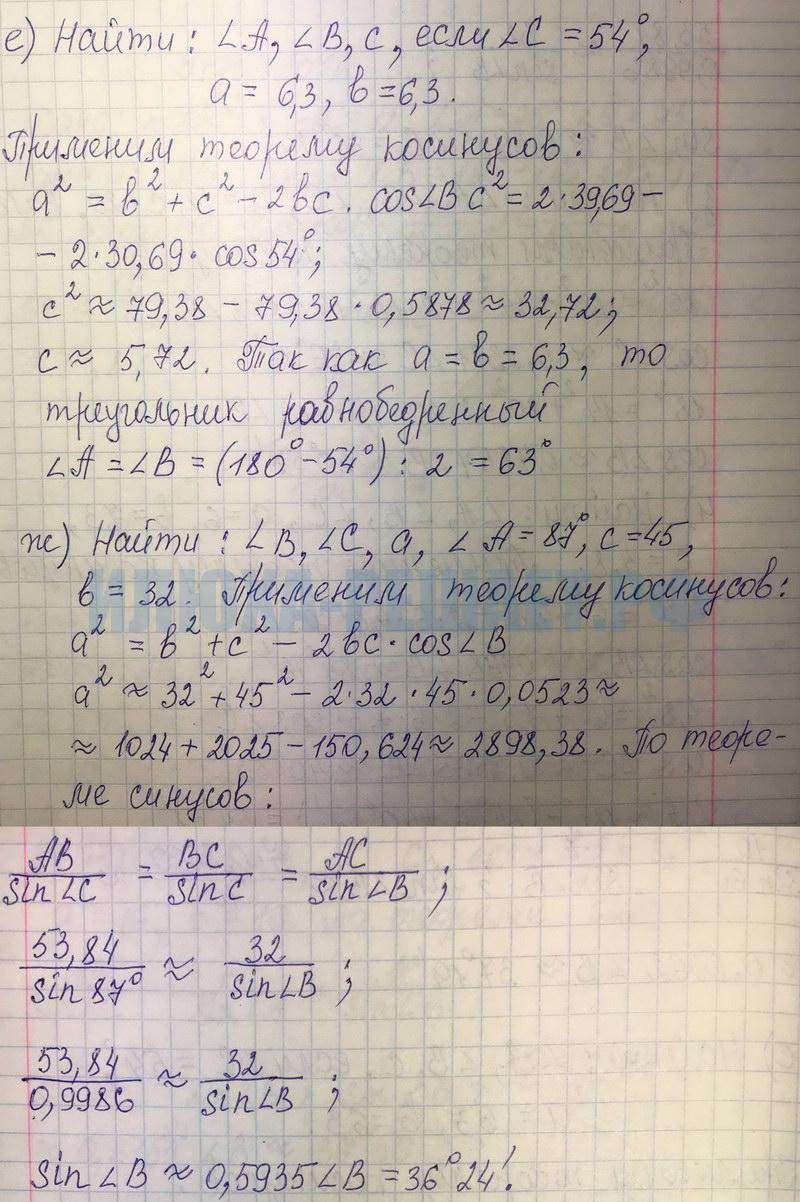 е) Найти: ∠A, ∠B, c, если ∠C = 54°,
a = 6,3, b = 6,3.
Применим теорему косинусов:
a² = b² + c² - 2bc · cos∠B c² = 2·39,69 -
- 2·30,69 · cos 54°;
c² ≈ 79,38 - 79,38 · 0,5878 ≈ 32,72;
c ≈ 5,72. Так как a = b = 6,3, то
треугольник равнобедренный
∠A = ∠B = (180° - 54°) : 2 = 63°
ж) Найти: ∠B, ∠C, a, ∠A = 87°, c = 45,
b = 32. Применим теорему косинусов:
a² = b² + c² - 2bc · cos∠B
a² ≈ 32² + 45² - 2·32·45·0,0523 ≈
≈ 1024 + 2025 - 150,624 ≈ 2898,38. По теоре-
ме синусов:
AB/sin∠C = BC/sinC = AC/sin∠B;
53,84/sin87° ≈ 32/sin∠B;
53,84/0,9986 ≈ 32/sin∠B;
sin∠B ≈ 0,5935 ∠B = 36°24'.